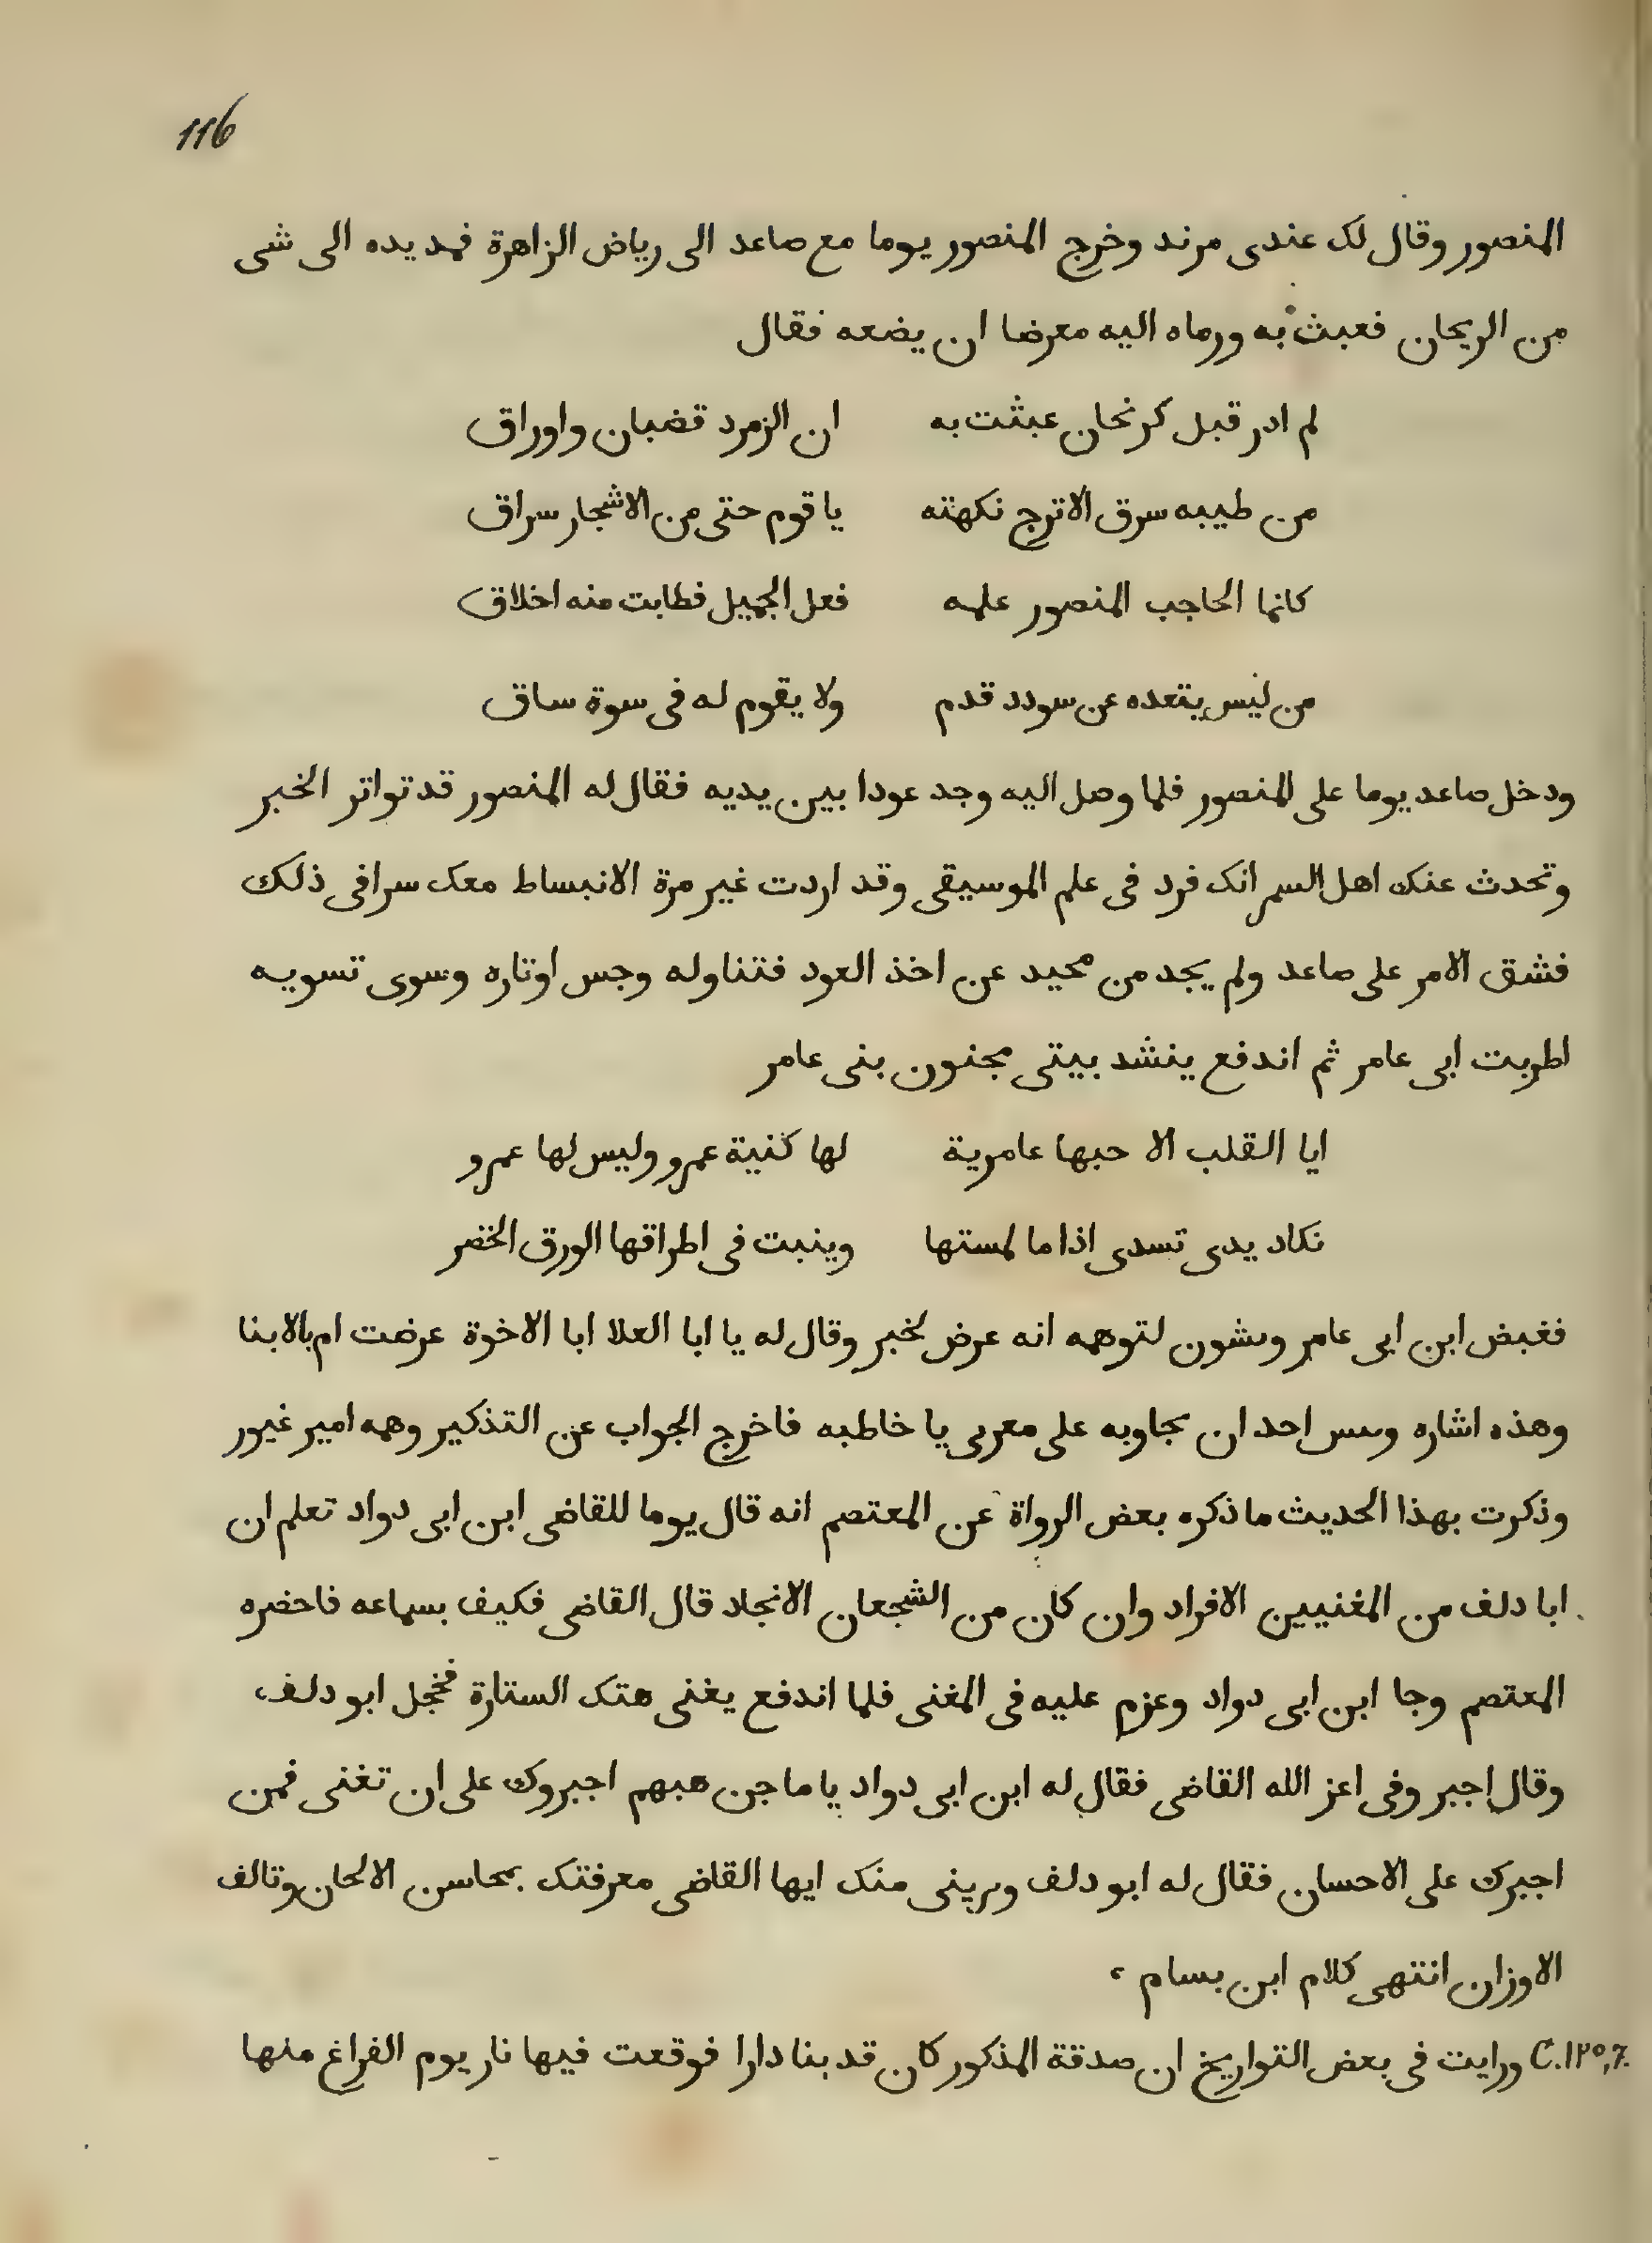 116
المنصور وقال لك عندى مزند وخرج المنصور يوما مع صاعد الى رياض الزاهرة فمد يده الى شى
من الريحان فعبث به ورماه اليه معرضا ان يضعه فقال
لم ادر قبل كرنحان عبثت به ان الزمرد قضبان واوراق
من طيبه سرق الاترج نكهته يا قوم حتى من الاشجار سراق
كانما الحاجب المنصور علمه فعل الجميل فطابت منه اخلاق
من ليس يتعده عن سودد قدم ولا يقوم له فى سوة ساق
ودخل صاعد يوما على المنصور فلما وصل اليه وجد عودا بين يديه فقال له المنصور قد تواتر الخبر
وتحدث عنك اهل السمر انك فرد فى علم الموسيقى وقد اردت غير مرة الانبساط معك سرا فى ذلك
فشق الامر على صاعد ولم يجد من محيد عن اخذ العود فتناوله وجس اوتاره وسوى تسويه
اطربت ابى عامر ثم اندفع ينشد بيتى مجنون بنى عامر
ايا القلب الا حبها عامرية لها كنية عمرو وليس لها عمرو
نكاد يدى تسدى اذا ما لمستها وينبت فى اطراقها الورق الخضر
فغبض ابن ابى عامر وىشون لتوهمه انه عرض بخبر وقال له يا ابا العلا ابا الاخوة عرضت ام بالابنا
وهذه اشاره احد ان يجاوبه على معربى يا خاطبه فاخرج الجواب عن التذكير وهمه امير غيور
وذكرت بهذا الحديث ما ذكره بعض الرواة عن المعتصم انه قال يوما للقاضى ابن ابى دواد تعلم ان
ابا دلف من المغنيين الافراد وان كان من الشجعان الانجاد قال القاضى فكيف بسماعه فاحضره
المعتصم وجا ابن ابى دواد وعزم عليه فى المغنى فلما اندفع يغنى هتك الستارة فخجل ابو دلف
وقال اجبر وفى اعز الله القاضى فقال له ابن ابى دواد يا ماجن هبهم اجبروك على ان تغنى فمن
اجبرك على الاحسان فقال له ابو دلف ويرينى منك ايها القاضى معرفتك بمحاسن الالحان وتالف
الاوزان انتهى كلام ابن بسام
ورايت فى بعض التواريخ ان صدقة المذكور كان قد بنا دارا فوقعت فيها نار يوم الفراغ منها